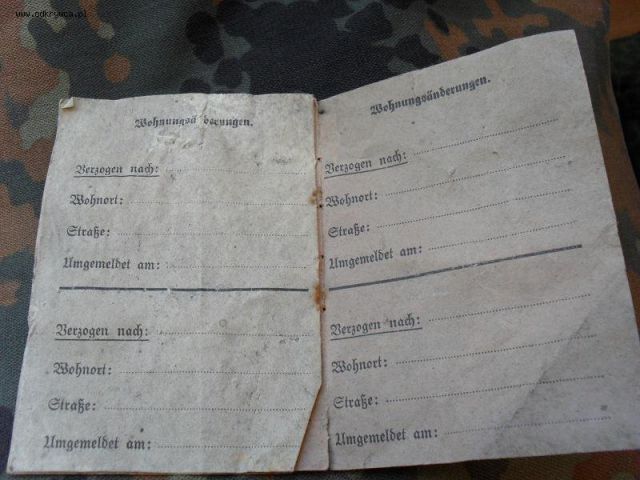 www.odkrywca.pl
Wohnungsänderungen.
Verzogen nach:
Wohnort:
Straße:
Umgemeldet am:
Verzogen nach:
Wohnort:
Straße:
Umgemeldet am:
Wohnungsänderungen.
Verzogen nach:
Wohnort:
Straße:
Umgemeldet am:
Verzogen nach:
Wohnort:
Straße:
Umgemeldet am: